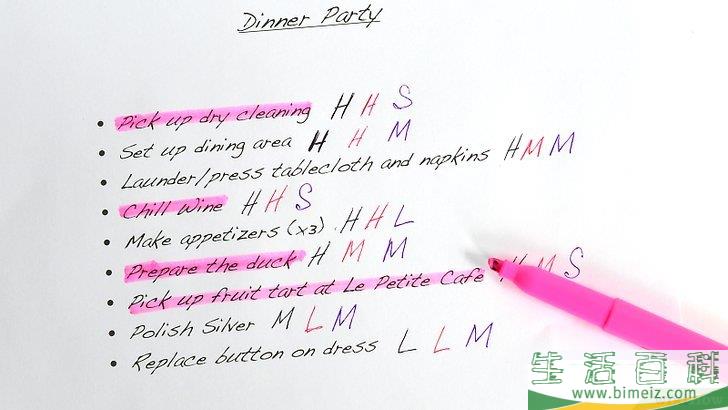 Dinner Party
• Pick up dry cleaning H H S
• Set up dining area H H M
• Launder/press tablecloth and napkins H M M
• Chill Wine H H S
• Make appetizers (x3) H H L
• Prepare the duck H M M
• Pick up fruit tart at Le Petite Cafe H M S
• Polish Silver M L M
• Replace button on dress L L M
生活百科
www.bimeiz.com